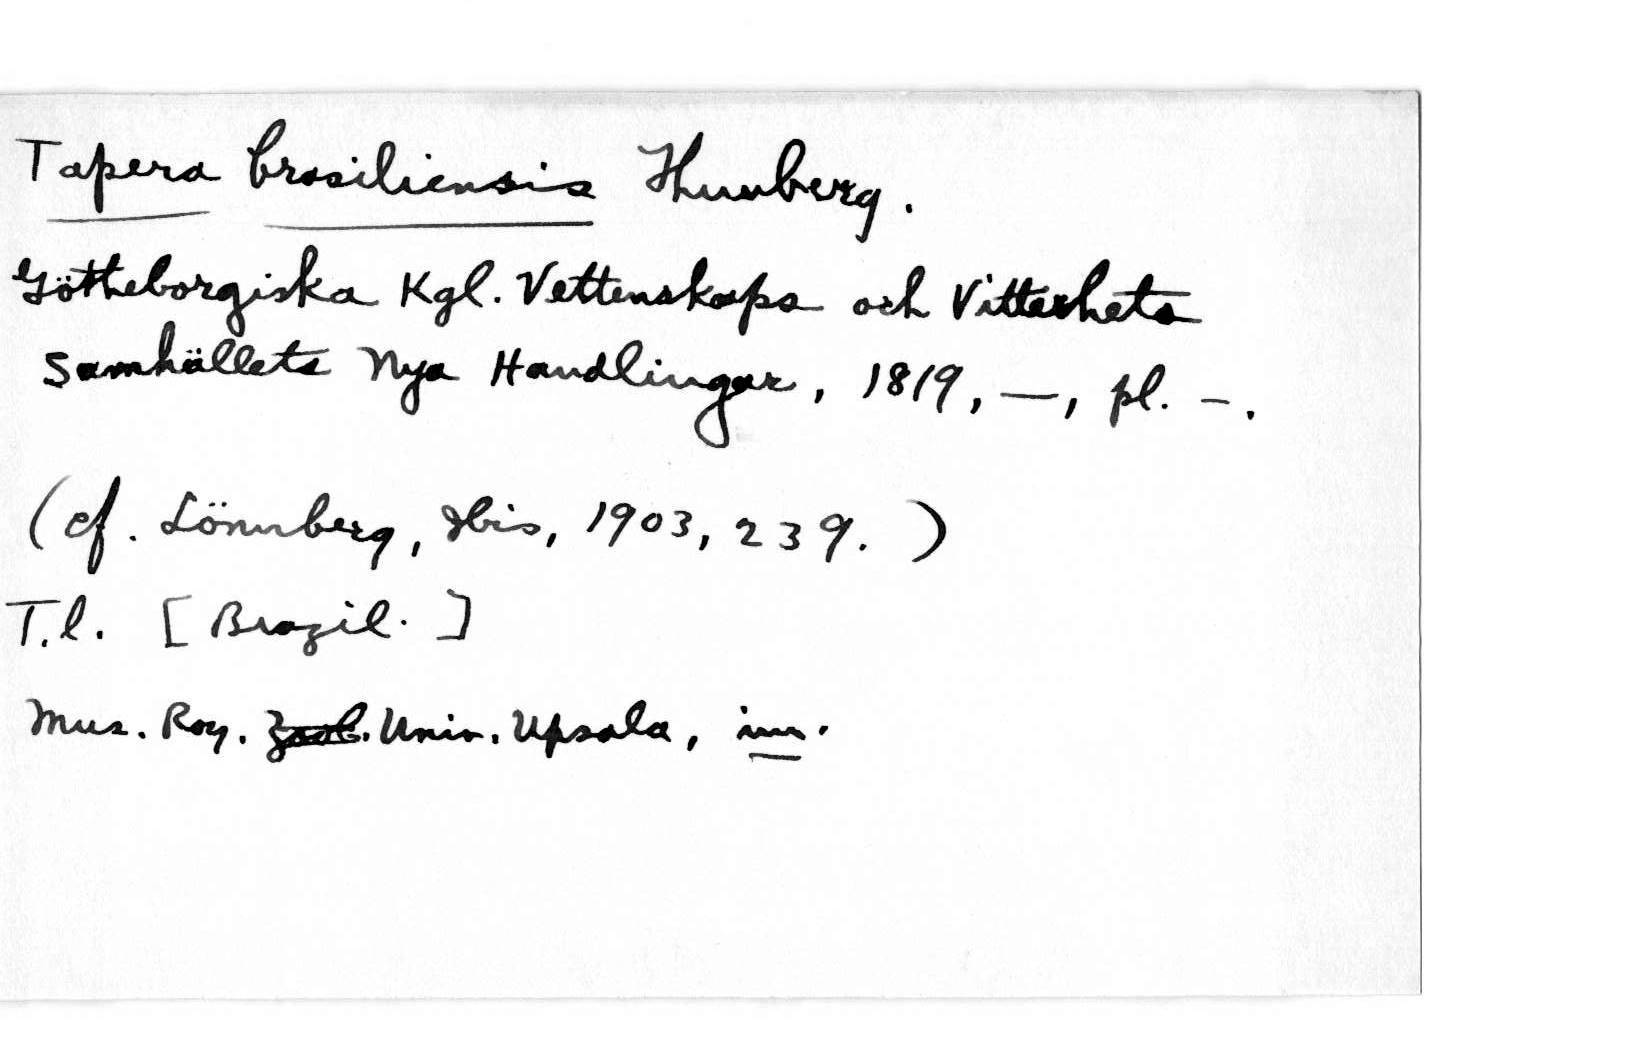 Tapera brasiliensis Thunberg.
Götheborgiska Kgl. Vettenskaps och Vitterhets
Samhällets Nya Handlingar, 1819, —, pl. –.
(cf. Lönnberg, Ibis, 1903, 239. )
T.l. [ Brazil. ]
Mus. Roy. Zool. Univ. Upsala, im.